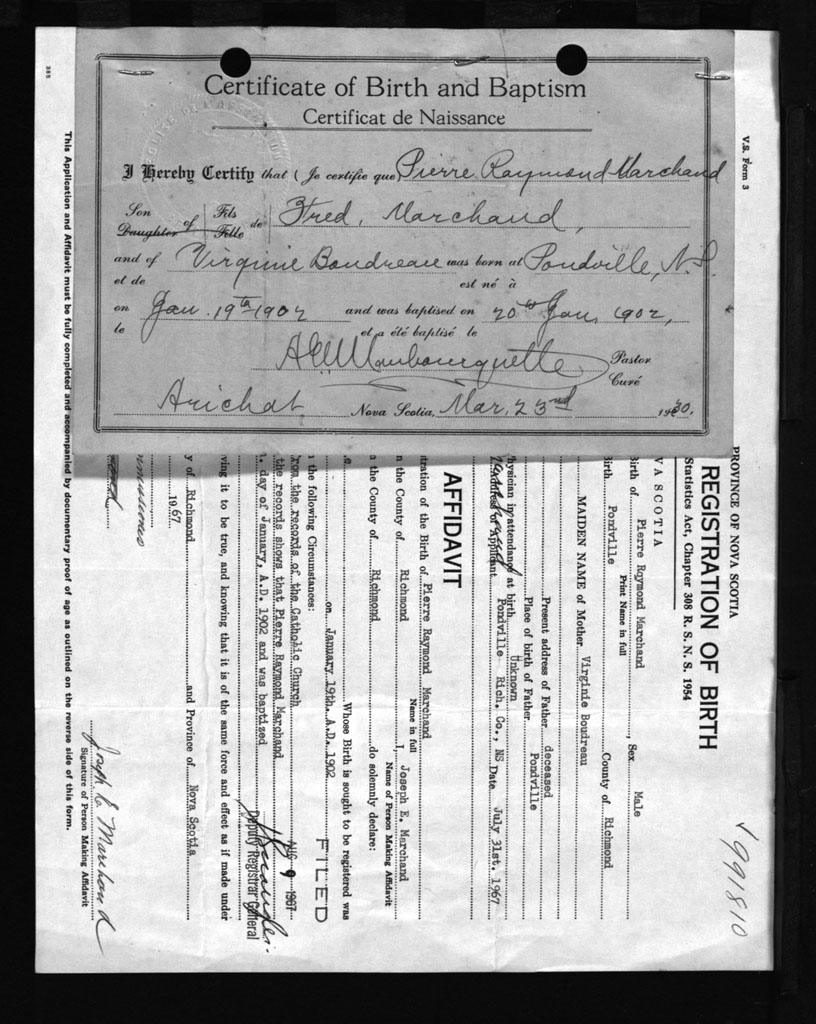 Certificate of Birth and Baptism
Certificat de Naissance
I Hereby Certify that (Je certifie que Pierre Raymond Marchand
Son Fils
Daughter of Fille de Fred. Marchand,
and of Virginie Boudreau was born at Pondville, N.S.
et de est né à
on Jan. 19th 1902 and was baptised on 20th Jan. 1902,
le et a été baptisé le
Pastor
Curé
Arichat Nova Scotia, Mar. 23rd 1930.
385
V.S. Form 3
PROVINCE OF NOVA SCOTIA
REGISTRATION OF BIRTH
Statistics Act, Chapter 308 R. S. N. S. 1954
VA SCOTIA
Birth of Pierre Raymond Marchand, Sex Male
Print Name in full
Birth Pondville County of Richmond
MAIDEN NAME of Mother Virginie Boudreau
Present address of Father deceased
Place of birth of Father Pondville
hysician in attendance at birth Unknown
Address of Applicant Pondville Rich. Co., NS Date July 31st. 1967
AFFIDAVIT
tration of the Birth of Pierre Raymond Marchand
Name in full
n the County of Richmond I, Joseph E. Marchand
Name of Person Making Affidavit
n the County of Richmond do solemnly declare:
e. Whose Birth is sought to be registered was
on January 19th. A.D. 1902
n the following Circumstances:
rom the records of the Catholic Church
the records shows that Pierre Raymond Marchand
day of January, A.D. 1902 and was baptized
FILED
AUG 9 1967
Deputy Registrar General
ving it to be true, and knowing that it is of the same force and effect as if made under
y of Richmond and Province of Nova Scotia
1967
Joseph E Marchand
Signature of Person Making Affidavit
This Application and Affidavit must be fully completed and accompanied by documentary proof of age as outlined on the reverse side of this form.
991810